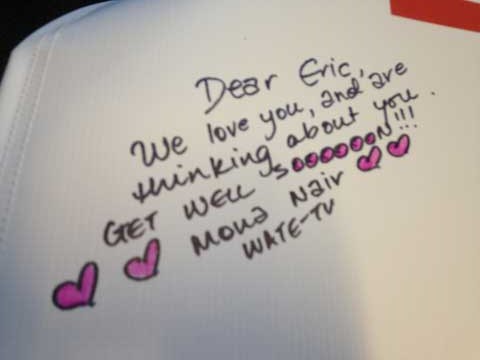 Dear Eric,
We love you, and are
thinking about you.
GET WELL SOOOOOON!!!
Mona Nair
WATE-TV